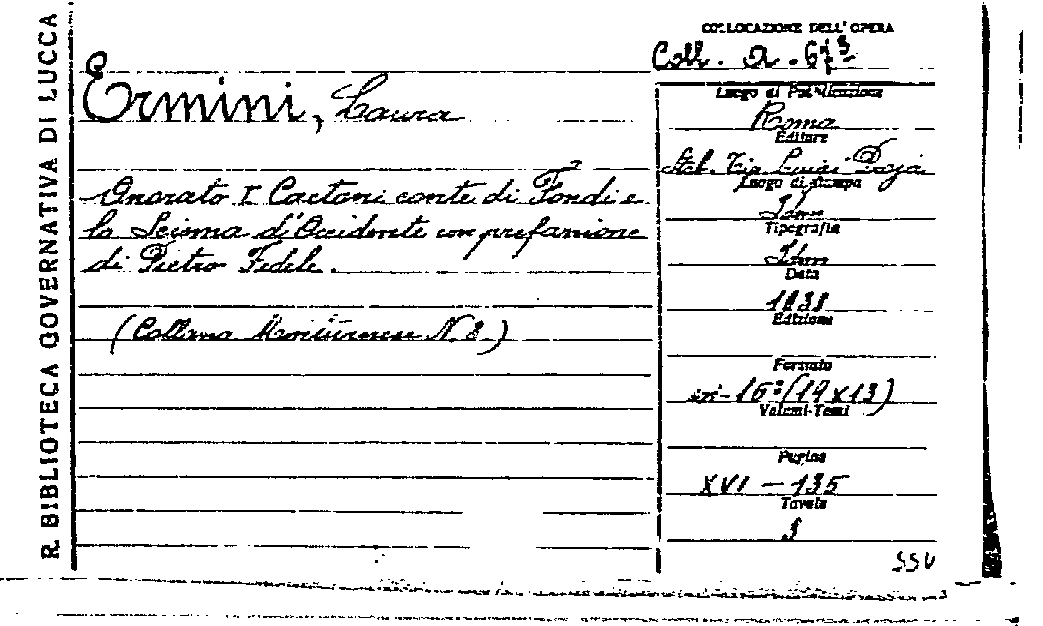 R. BIBLIOTECA GOVERNATIVA DI LUCCA
Ermini, Laura
Onorato I Caetani conte di Fondi e
lo Scisma d'Occidente con prefazione
di Pietro Fedele.
(Collana Minturnese N. 8.)
COLLOCAZIONE DELL'OPERA
Coll. a. 67
Luogo di Pubblicazione
Roma
Editore
Stab. Tip. Luigi
Luogo di stampa
Idem
Tipografia
Idem
Data
1938
Edizione
Formato
in-16° (19 x 13)
Volumi-Tomi
Pagine
XVI - 135
Tavole